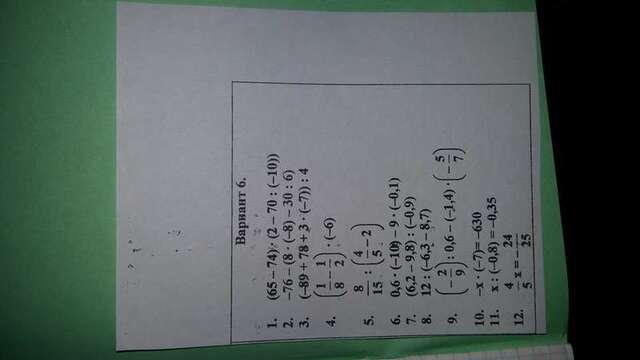 Вариант 6.
1. (65 – 74) · (2 – 70 : (–10))
2. –76 – (8 · (–8) – 30 : 6)
3. (–89 + 78 + 3 · (–7)) : 4
4. (1/8 – 1/2) · (–6)
5. 8/15 : (4/5 – 2)
6. 0,6 · (–10) – 9 · (–0,1)
7. (6,2 – 9,8) : (–0,9)
8. 12 : (–6,3 – 8,7)
9. (–2/9) : 0,6 – (–1,4) · (–5/7)
10. –x · (–7)= –630
11. x : (–0,8) = –0,35
12. 4/5 x = –24/25